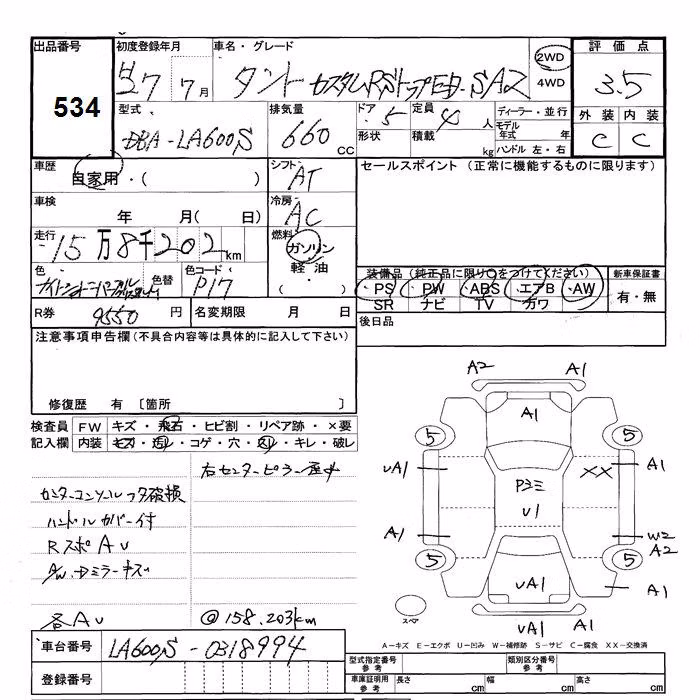 出品番号
534
初度登録年月
27 7月
車名・グレード
タント カスタムRSトップED・SAⅡ
2WD
4WD
評価点
3.5
外装 内装
C C
型式
DBA-LA600S
排気量
660 CC
ドア 5
形状
定員 4 人
積載 kg
ディーラー・並行
モデル年式 年
ハンドル 左・右
車歴
自家用・( )
シフト
AT
セールスポイント (正常に機能するものに限ります)
車検
年 月( 日)
冷房
AC
走行
15万8千202km
燃料
ガソリン
軽油
・( )
色
色替
色コード
P17
装備品(純正品に限り○をつけてください)
PS PW ABS エアB AW
SR ナビ TV カワ
新車保証書
有・無
R券 9550 円
名変期限 月 日
後日品
注意事項申告欄(不具合内容等は具体的に記入して下さい)
修復歴 有 〔箇所 〕
検査員記入欄
FW キズ・飛石・ヒビ割・リペア跡・×要
内装 キズ・汚レ・コゲ・穴・スレ・キレ・破レ
右センターピラー歪
センターコンソールフタ破損
ハンドルカバー付
RスポAU
AW.ドミラーキズ
各AU
@158.203km
A2 A1
A1
5 5
UA1 A1
XX
Pヌミ
U1
A1 W2
A2
5 5
UA1 A1
UA1 A1
スペア
A-キズ E-エクボ U-凹み W-補修跡 S-サビ C-腐食 XX-交換済
車台番号 LA600S-0318994
登録番号
型式指定番号 参考
類別区分番号 参考
車庫証明用 参考
長さ cm
幅 cm
高さ cm